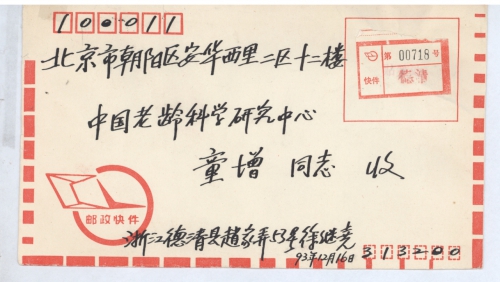 100011
北京市朝阳区安华西里二区十二楼
第 00718 号
快件
德清
中国老龄科学研究中心
童增 同志 收
邮政快件
浙江德清县赵家弄15号徐继尧
93年12月16日
313200